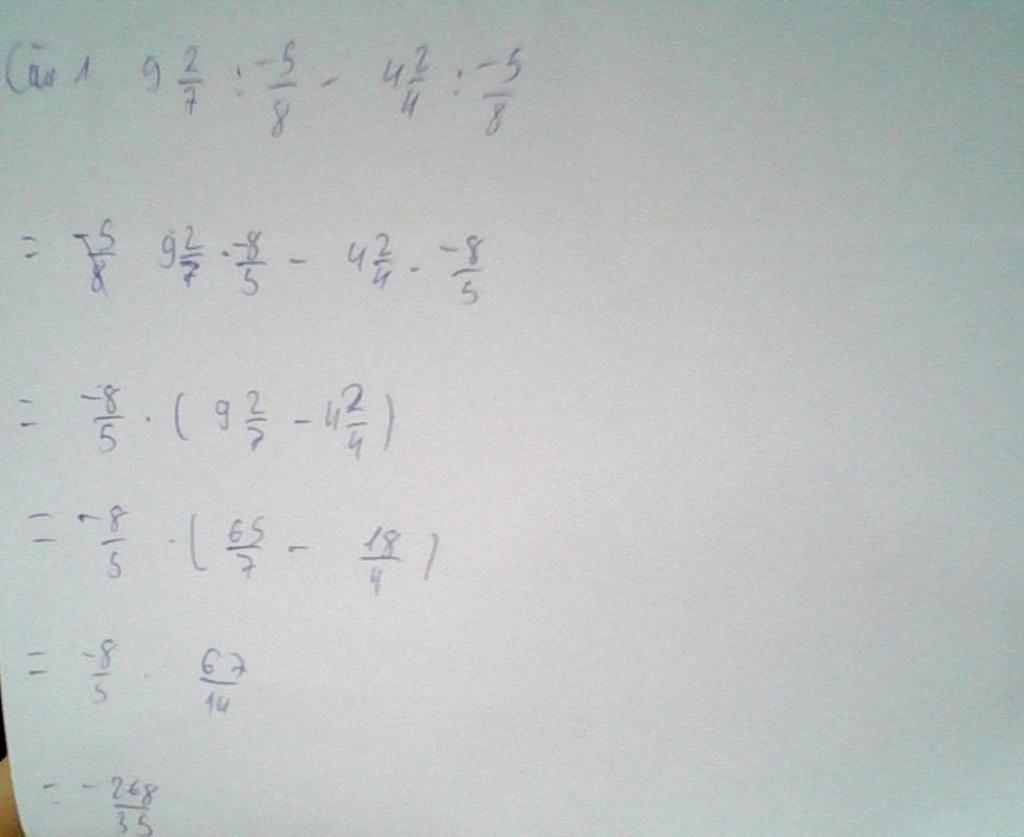 Câu 1 9 2/7 : -5/8 - 4 2/4 : -5/8
= 9 2/7 . -8/5 - 4 2/4 . -8/5
= -8/5 . ( 9 2/7 - 4 2/4 )
= -8/5 . ( 65/7 - 18/4 )
= -8/5 . 67/14
= - 268/35